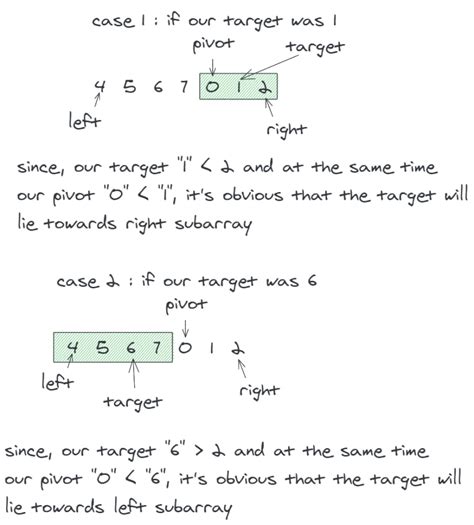 case 1 : if our target was 1
pivot
target
4 5 6 7 0 1 2
left
right
since, our target "1" < 2 and at the same time
our pivot "0" < "1", it's obvious that the target will
lie towards right subarray
case 2 : if our target was 6
pivot
4 5 6 7 0 1 2
left
target
right
since, our target "6" > 2 and at the same time
our pivot "0" < "6", it's obvious that the target will
lie towards left subarray